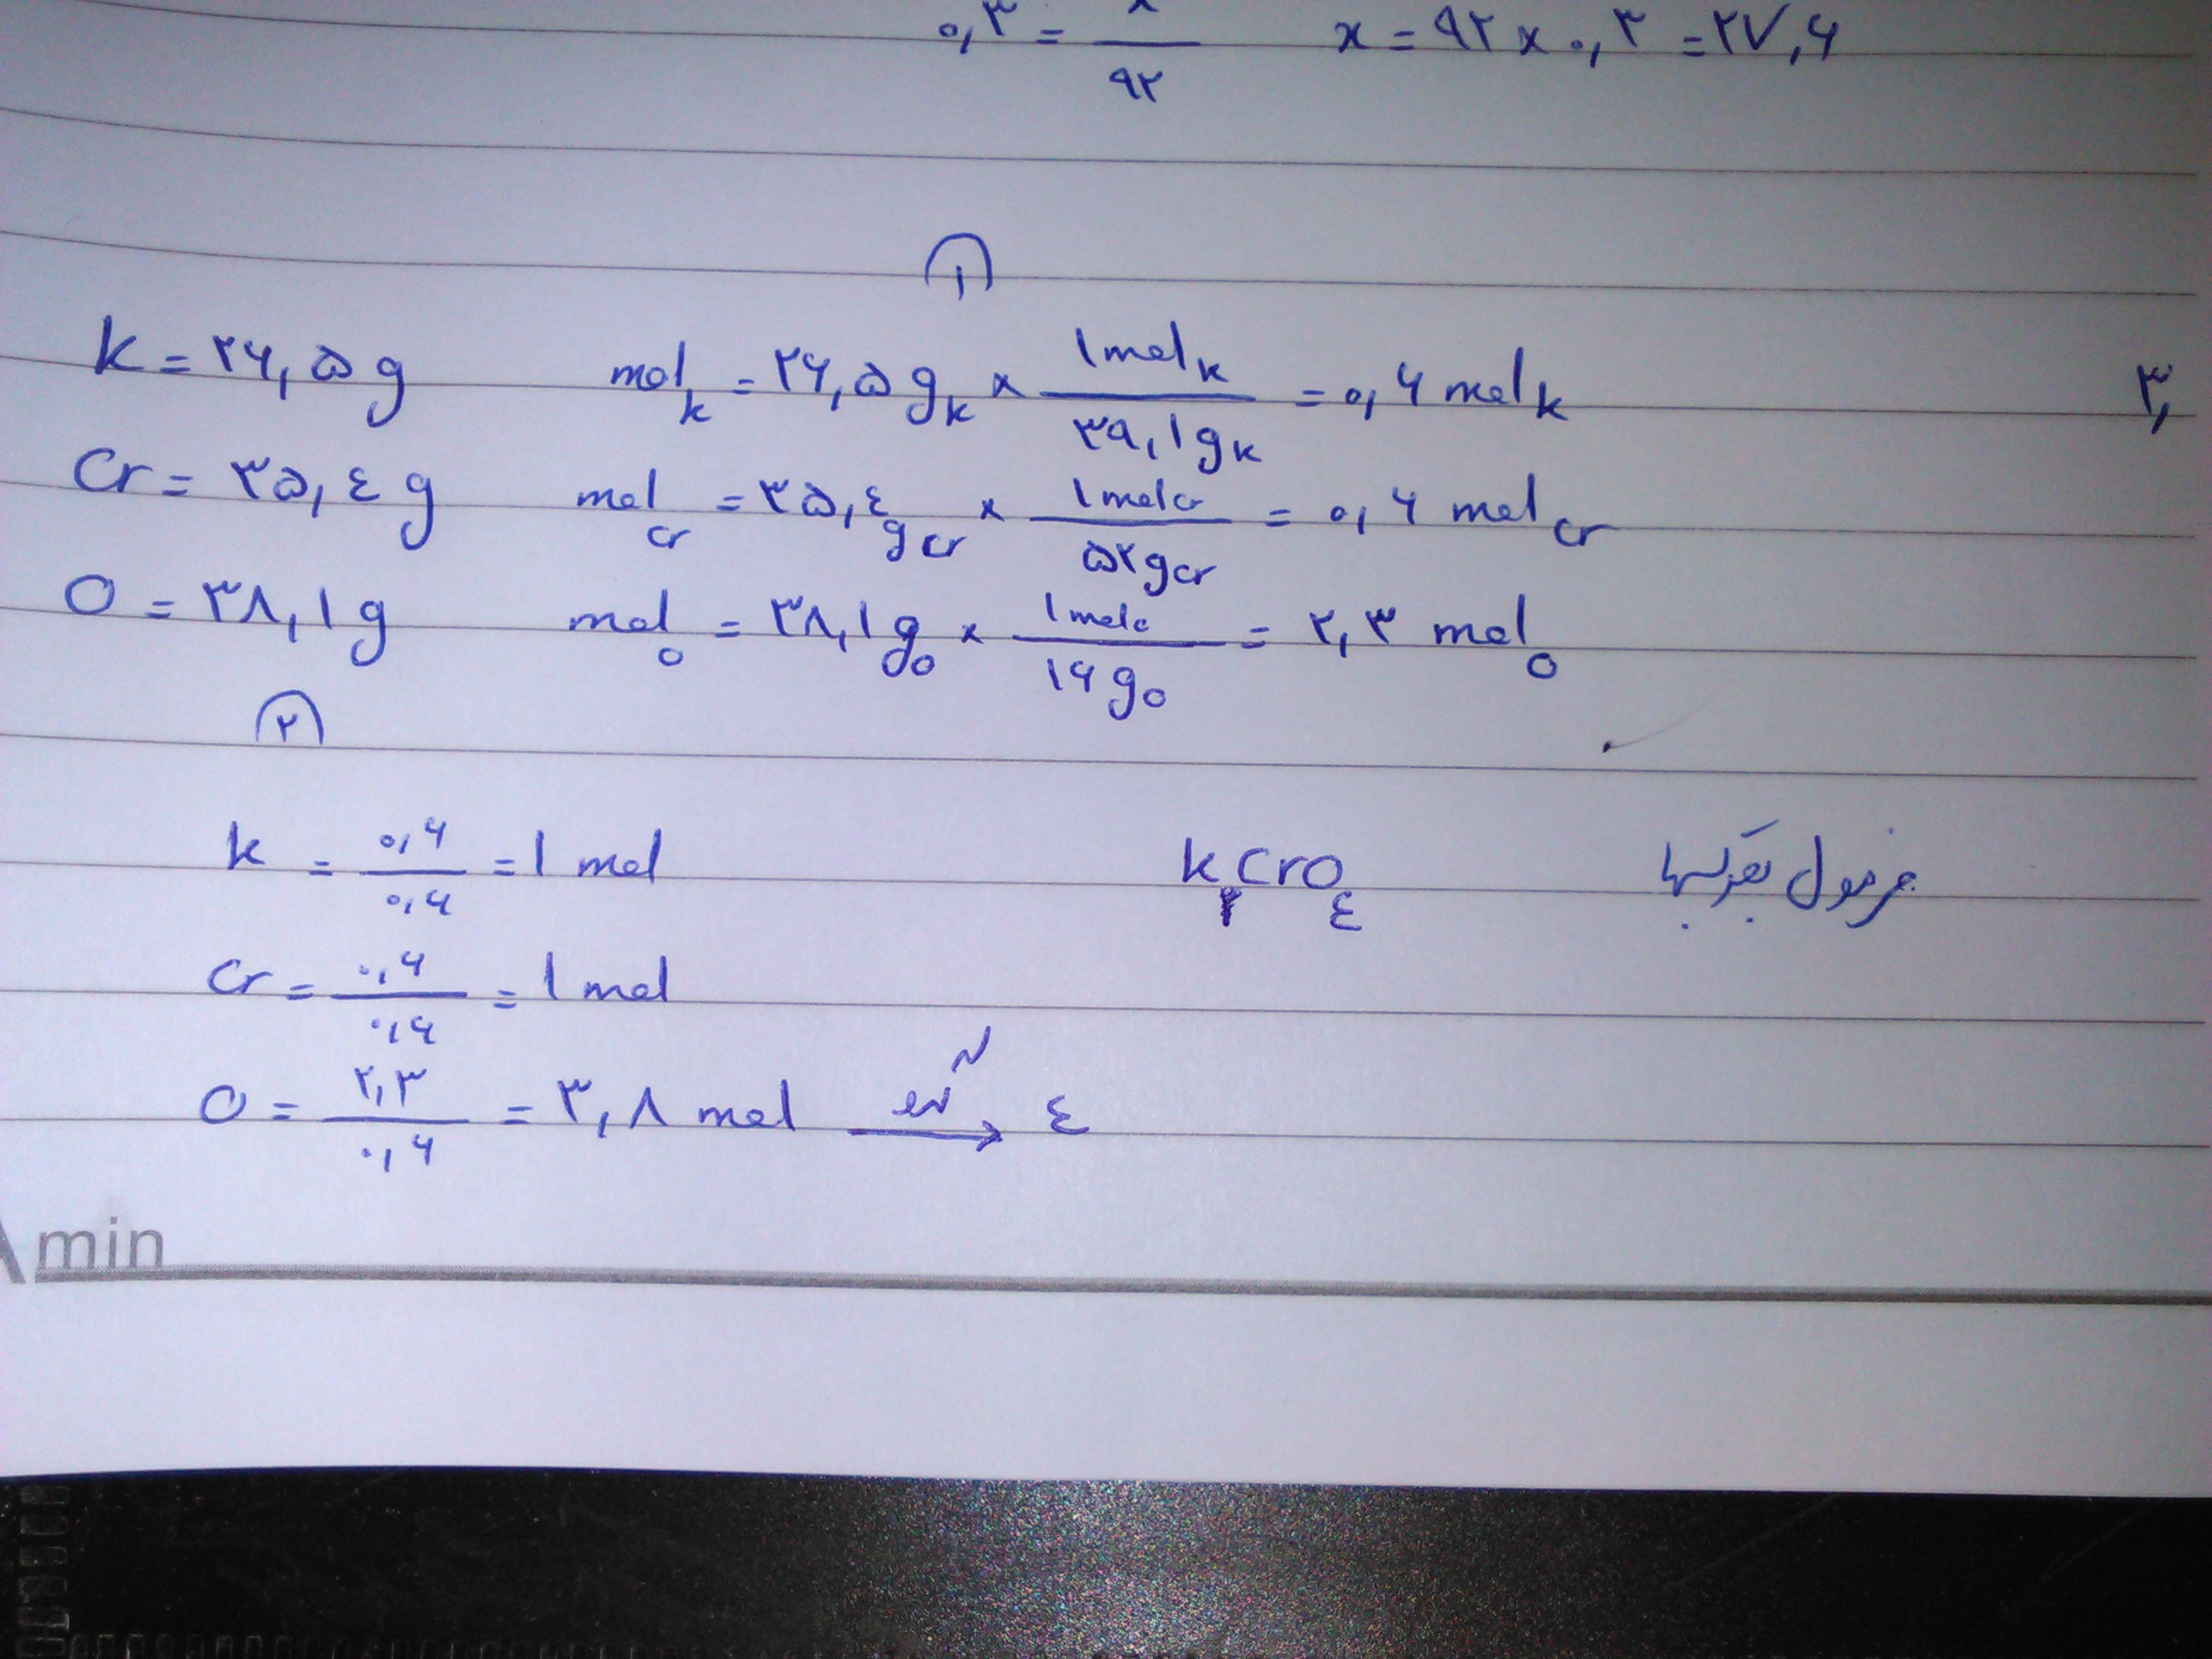 ۰,۳ = x/۹۲ x = ۹۲ x ۰,۳ = ۲۷,۶
۱
۳,
k = ۲۶,۵ g mol k = ۲۶,۵ g k x ۱ mol k / ۳۹,۱ g k = ۰,۶ mol k
Cr = ۳۵,٤ g mol cr = ۳۵,٤ g cr x ۱ mol cr / ۵۲ g cr = ۰,۶ mol cr
O = ۳۸,۱ g mol o = ۳۸,۱ g o x ۱ mol o / ۱۶ g o = ۲,۳ mol o
۲
k = ۰,۶/۰,۶ = ۱ mol k۲CrO٤ فرمول تجربی
Cr = ۰,۶/۰,۶ = ۱ mol
O = ۲,۳/۰,۶ = ۳,۸ mol → ٤
min